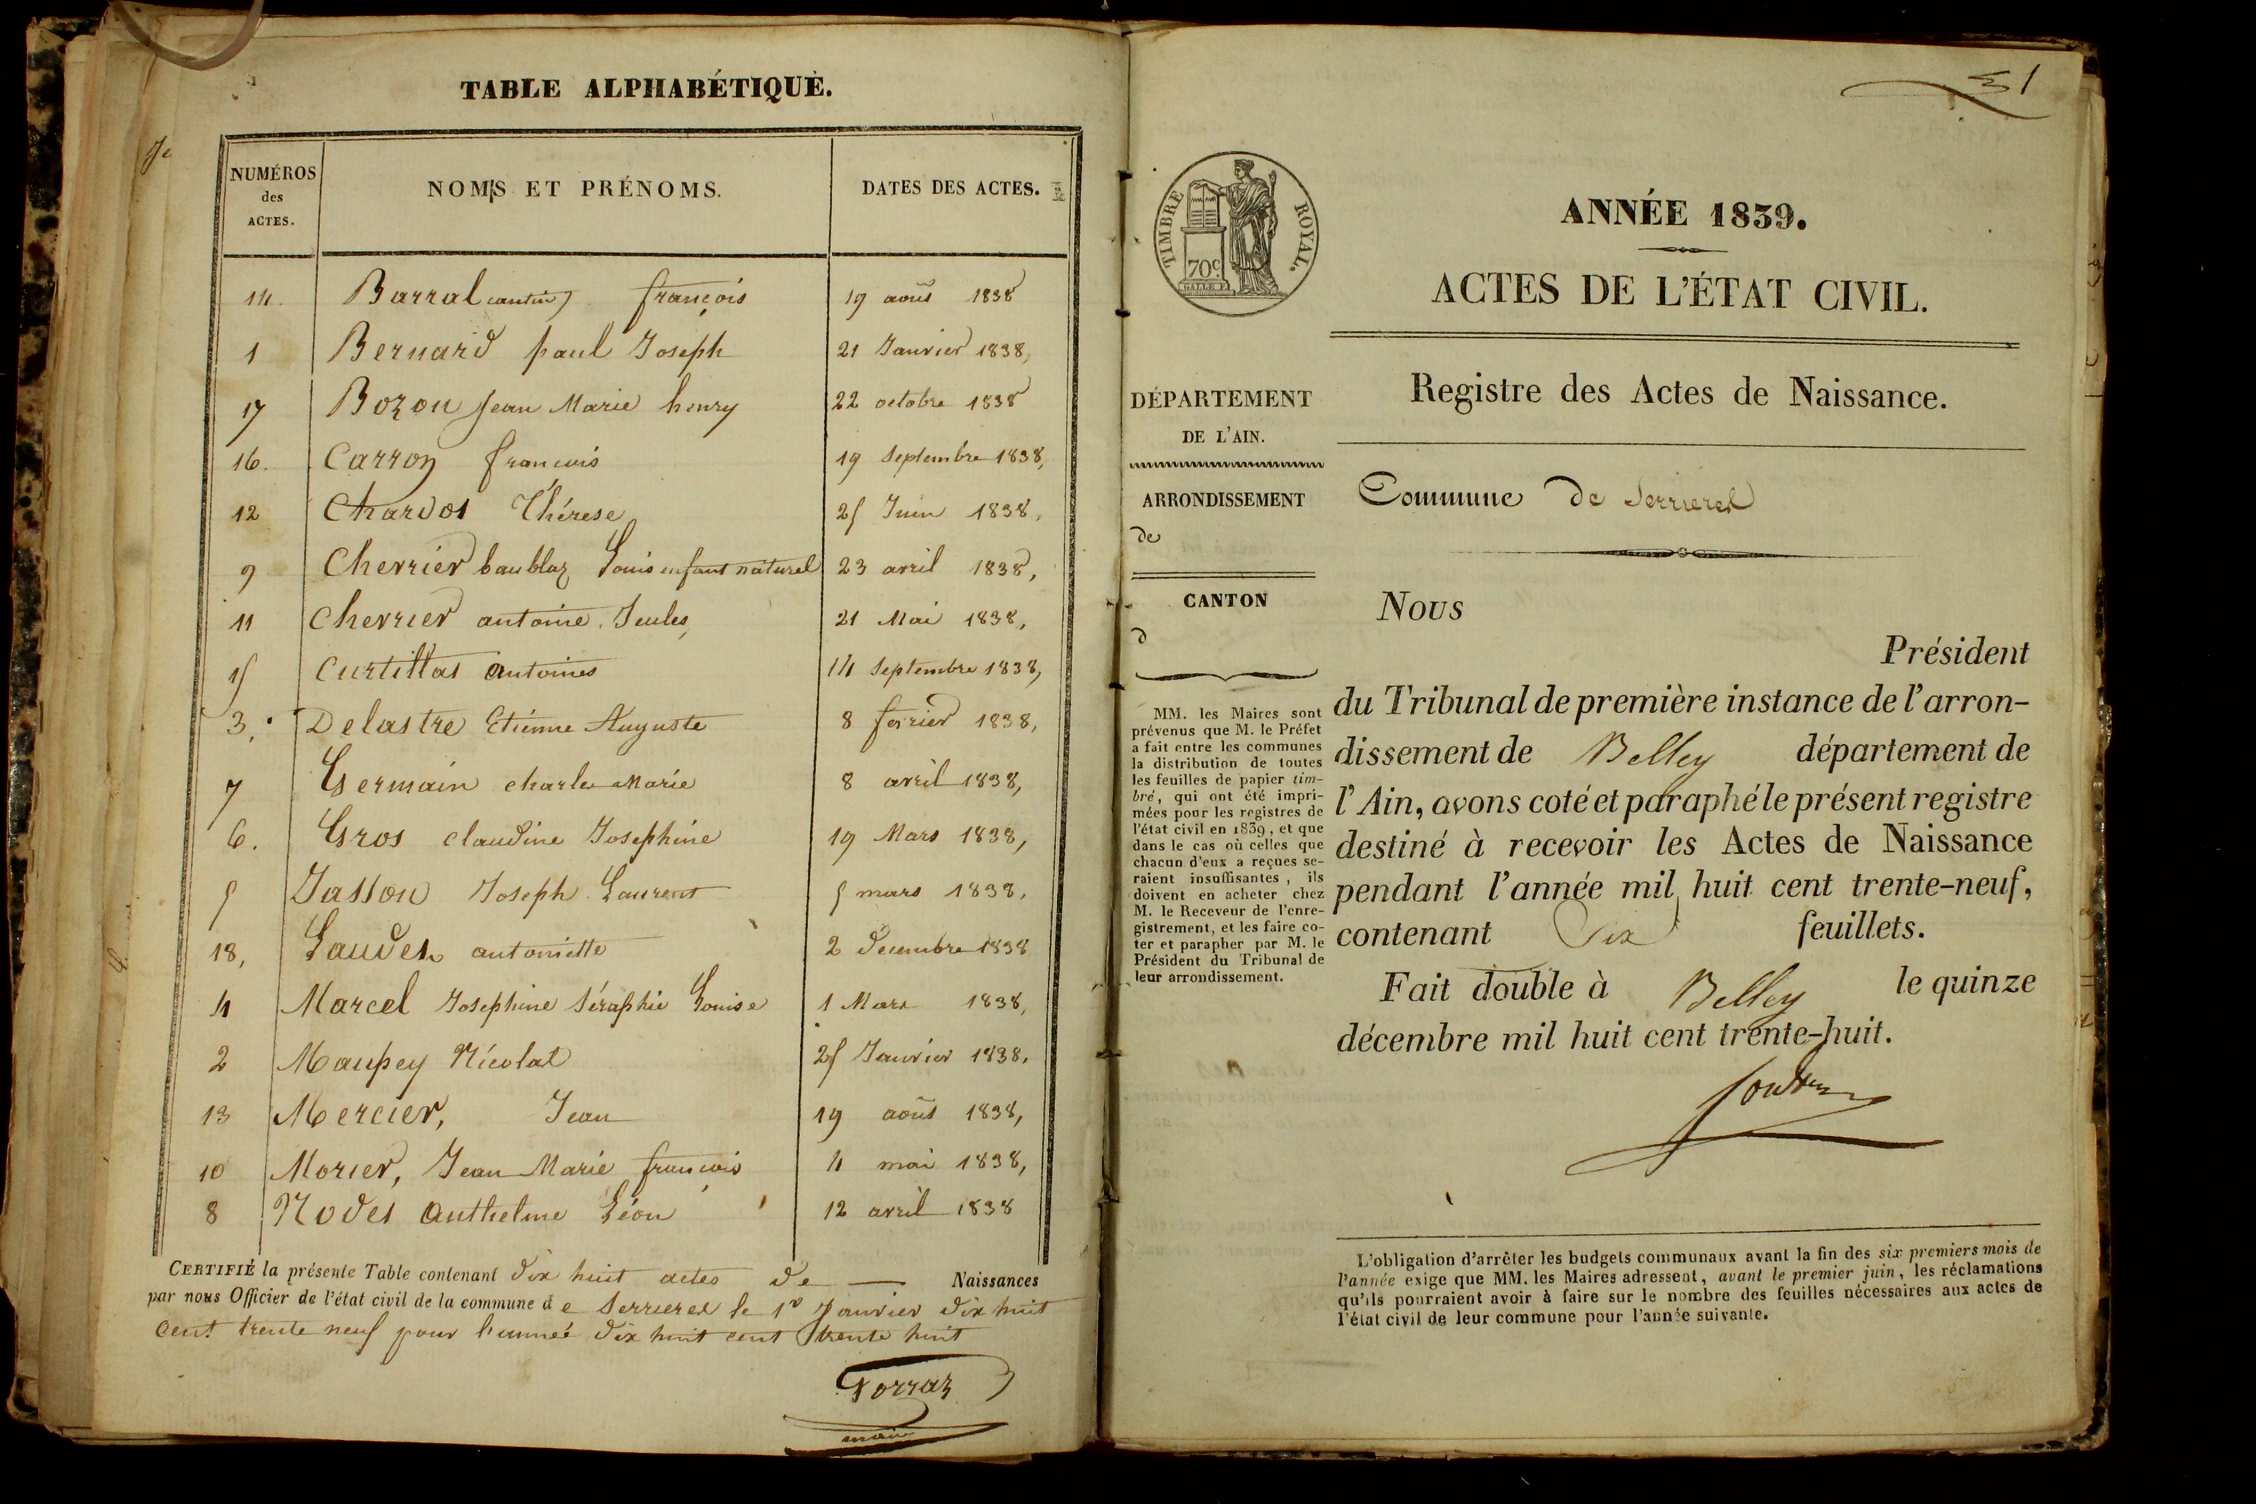 TABLE ALPHABÉTIQUE.
NUMÉROS des ACTES.
NOMS ET PRÉNOMS.
DATES DES ACTES.
14. Barral cantin françois 19 août 1838
1 Bernard paul Joseph 21 Janvier 1838,
17 Bozon Jean Marie henry 22 octobre 1838
16. Carron francois 19 Septembre 1838,
12 Chardos Thérese 25 Juin 1838,
9 Cherrier baublaz Louis enfant naturel 23 avril 1838,
11 Cherrier antoine Jeules, 21 Mai 1838,
15 Curtillas antoines 14 Septembre 1838,
3. Delastre Etiénne Auguste 8 fevrier 1838,
7 Germain charles Marie 8 avril 1838,
6. Gros claudine Josephine 19 Mars 1838,
5 Jasson Joseph Laurent 5 mars 1838,
18, Lauder antoniette 2 Decembre 1838
4 Marcel Josephine Séraphie Louise 1 Mars 1838,
2 Maupey Nicolas 25 Janvier 1838,
13 Mercier, Jean 19 août 1838,
10 Morier, Jean Marie françois 4 mai 1838,
8 Nodet Anthelme Léon 12 avril 1838
CERTIFIÉ la présente Table contenant dix huit actes de — Naissances
par nous Officier de l'état civil de la commune de Serrieres le 1er Janvier dix huit
cent trente neuf pour l'année dix huit cent trente huit
Gorraz
maire
1
TIMBRE ROYAL.
70c
ANNÉE 1839.
ACTES DE L'ÉTAT CIVIL.
Registre des Actes de Naissance.
Commune de Serrieres
DÉPARTEMENT
DE L'AIN.
ARRONDISSEMENT
de
CANTON
d
MM. les Maires sont
prévenus que M. le Préfet
a fait entre les communes
la distribution de toutes
les feuilles de papier tim-
bré, qui ont été impri-
mées pour les registres de
l'état civil en 1839, et que
dans le cas où celles que
chacun d'eux a reçues se-
raient insuffisantes, ils
doivent en acheter chez
M. le Receveur de l'enre-
gistrement, et les faire co-
ter et parapher par M. le
Président du Tribunal de
leur arrondissement.
Nous
Président
du Tribunal de première instance de l'arron-
dissement de Belley département de
l'Ain, avons coté et paraphé le présent registre
destiné à recevoir les Actes de Naissance
pendant l'année mil huit cent trente-neuf,
contenant Six feuillets.
Fait double à Belley le quinze
décembre mil huit cent trente-huit.
L'obligation d'arrêter les budgets communaux avant la fin des six premiers mois de
l'année exige que MM. les Maires adressent, avant le premier juin, les réclamations
qu'ils pourraient avoir à faire sur le nombre des feuilles nécessaires aux actes de
l'état civil de leur commune pour l'année suivante.